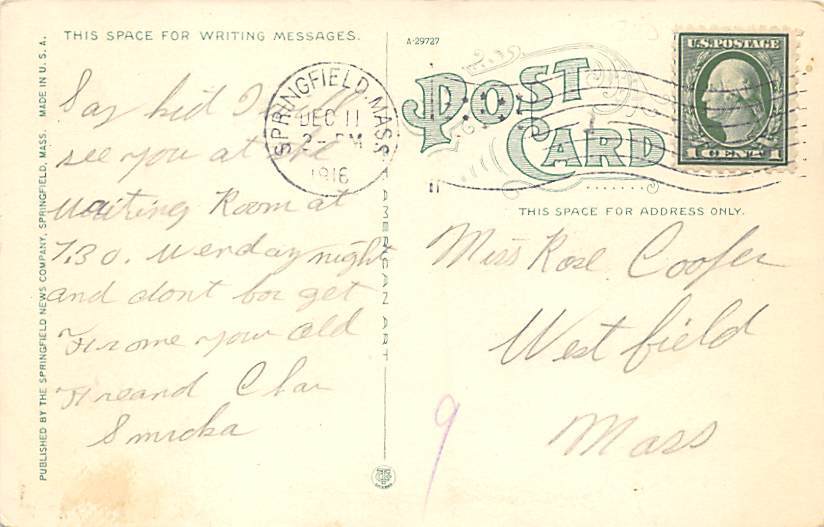 THIS SPACE FOR WRITING MESSAGES.
A-29727
POST
CARD
U.S. POSTAGE
1 CENT 1
SPRINGFIELD, MASS.
DEC 11
2- PM
1916
THIS SPACE FOR ADDRESS ONLY.
Say kid I will
see you at the
Waiting Room at
7.30. Wenday night
and dont for get
Frome your old
Freand Char
Smicka
Miss Rose Cooper
Westfield
Mass
9
PUBLISHED BY THE SPRINGFIELD NEWS COMPANY, SPRINGFIELD, MASS. MADE IN U.S.A.
C.T. AMERICAN ART